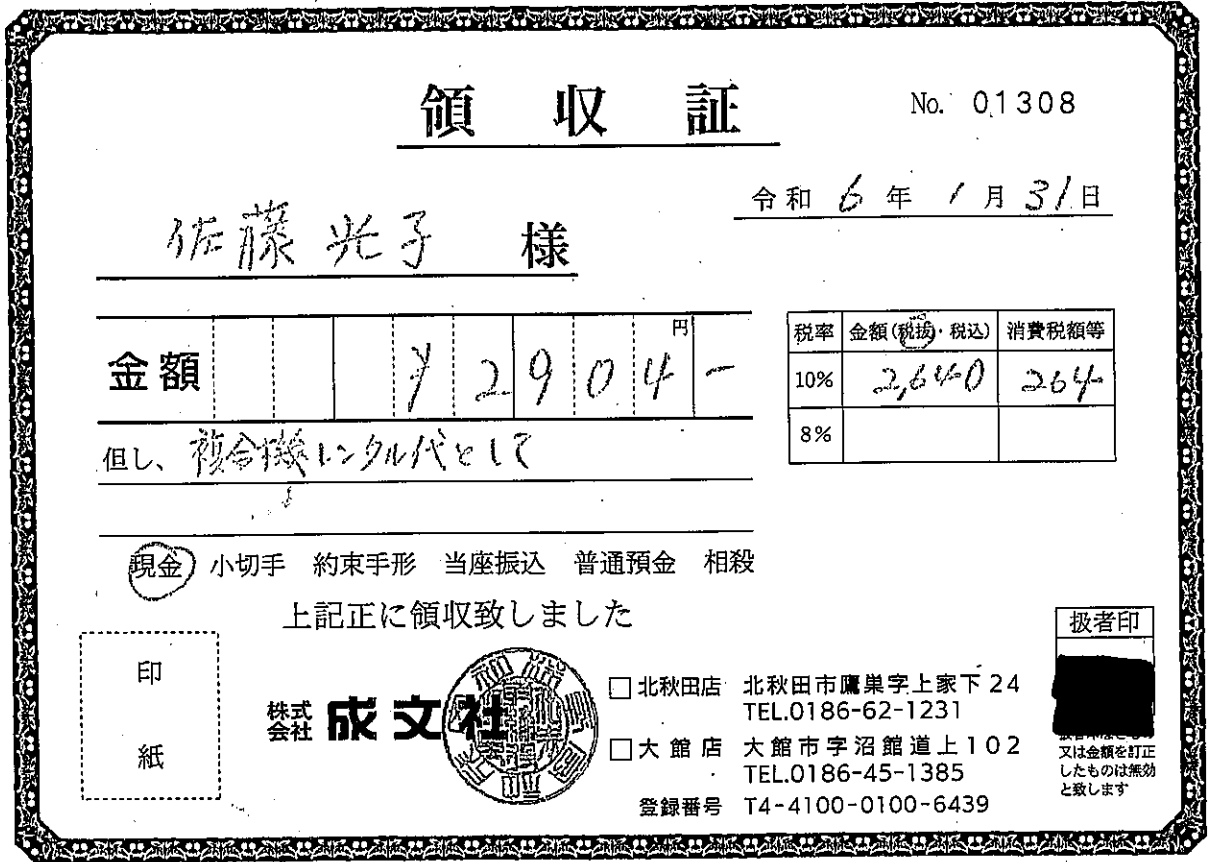 領収証
No. 01308
令和 6 年 1 月 31 日
佐藤 光子 様
金額 ¥2904- 円
税率 金額(税抜・税込) 消費税額等
10% 2,640 264-
8%
但し、複合機レンタル代として
現金 小切手 約束手形 当座振込 普通預金 相殺
上記正に領収致しました
印紙
株式会社 成文社
□北秋田店 北秋田市鷹巣字上家下24
TEL.0186-62-1231
□大館店 大館市字沼館道上102
TEL.0186-45-1385
登録番号 T4-4100-0100-6439
扱者印
又は金額を訂正
したものは無効
と致します